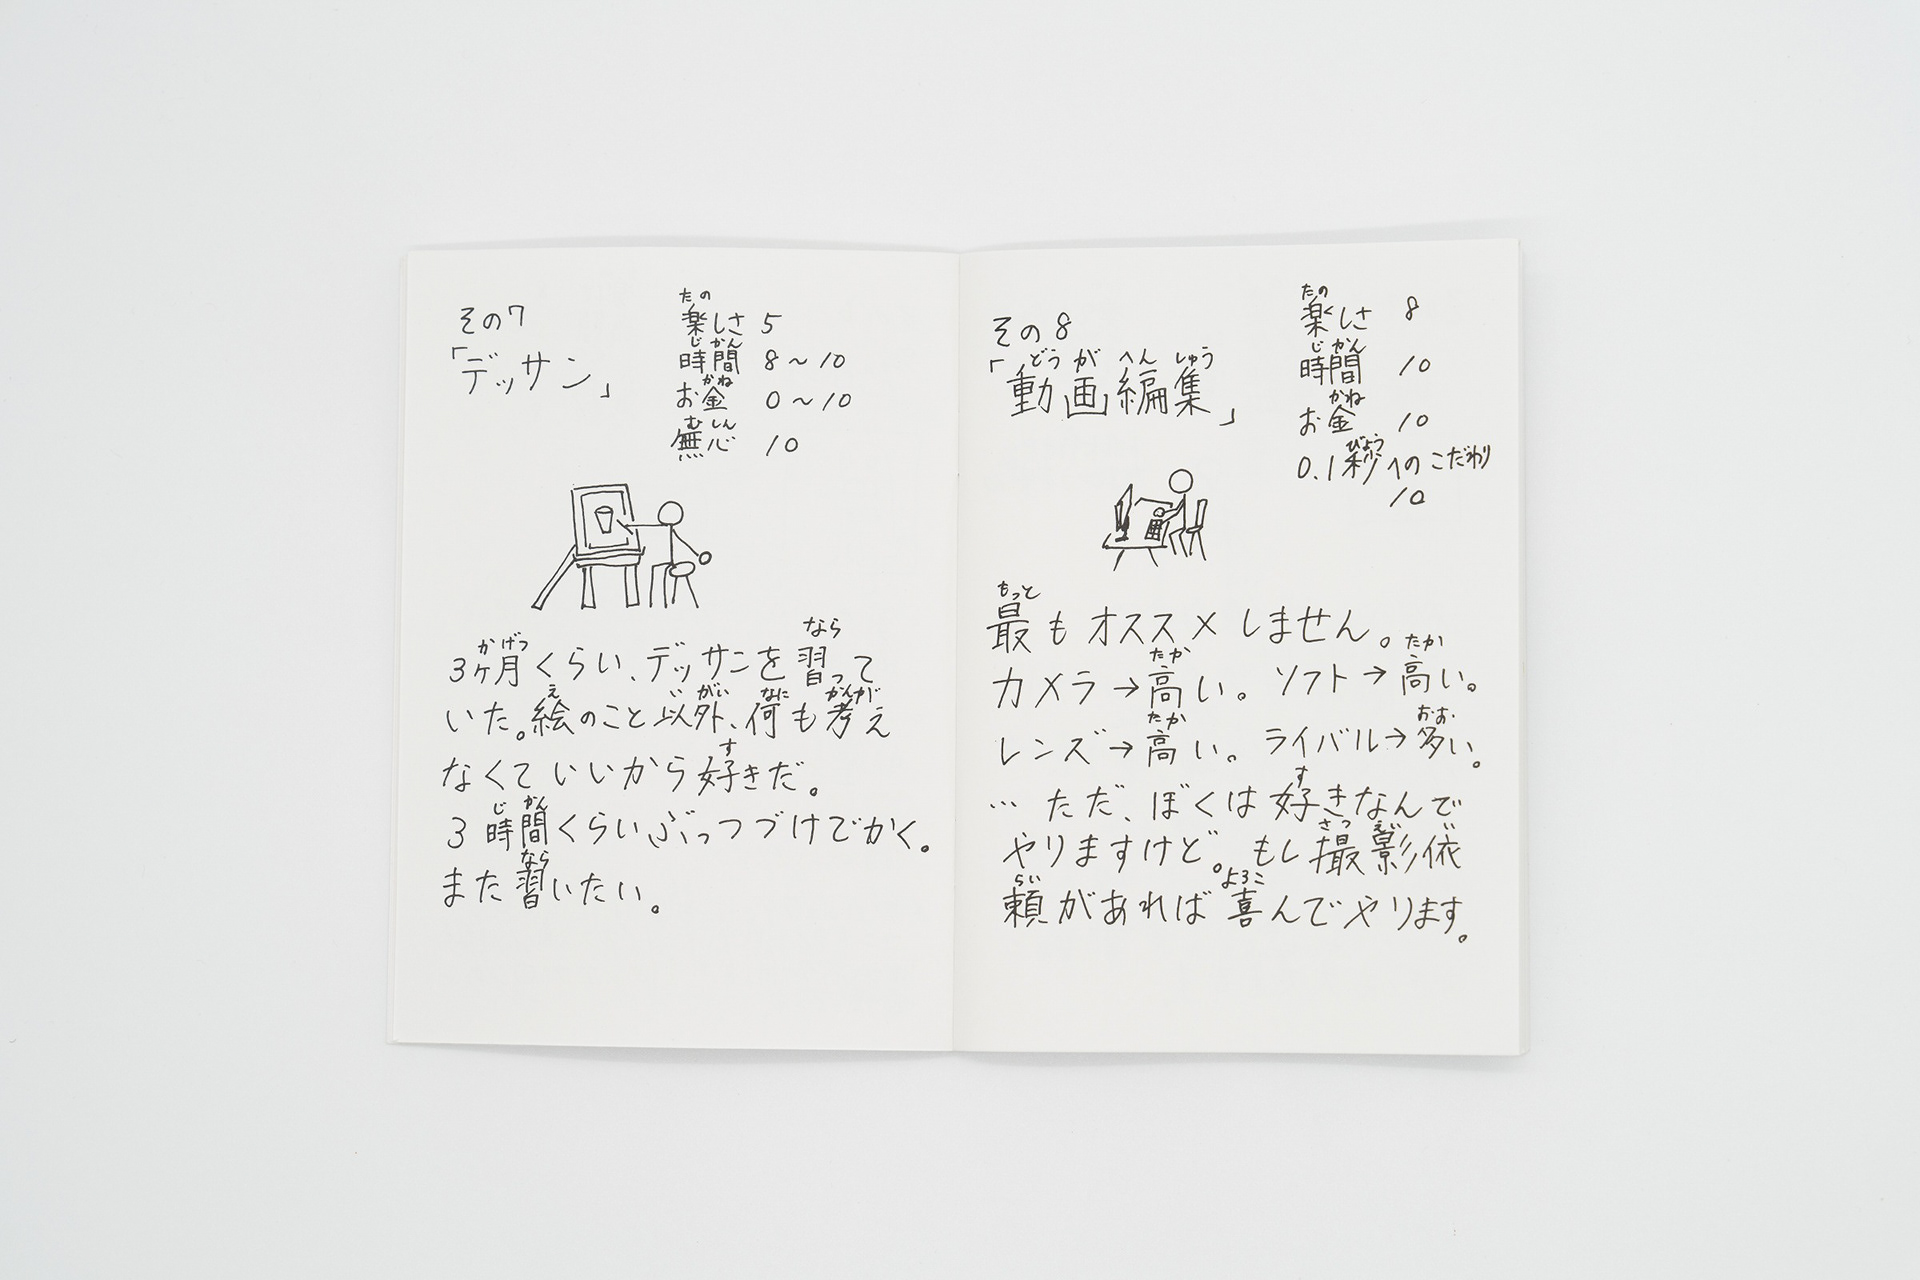 その7
「デッサン」
楽しさ 5
時間 8〜10
お金 0〜10
無心 10
3ヶ月くらい、デッサンを習って
いた。絵のこと以外、何も考え
なくていいから好きだ。
3時間くらいぶっつづけでかく。
また習いたい。
その8
「動画編集」
楽しさ 8
時間 10
お金 10
0.1秒へのこだわり
10
最もオススメしません。
カメラ→高い。ソフト→高い。
レンズ→高い。ライバル→多い。
…ただ、ぼくは好きなんで
やりますけど。もし撮影依
頼があれば喜んでやります。